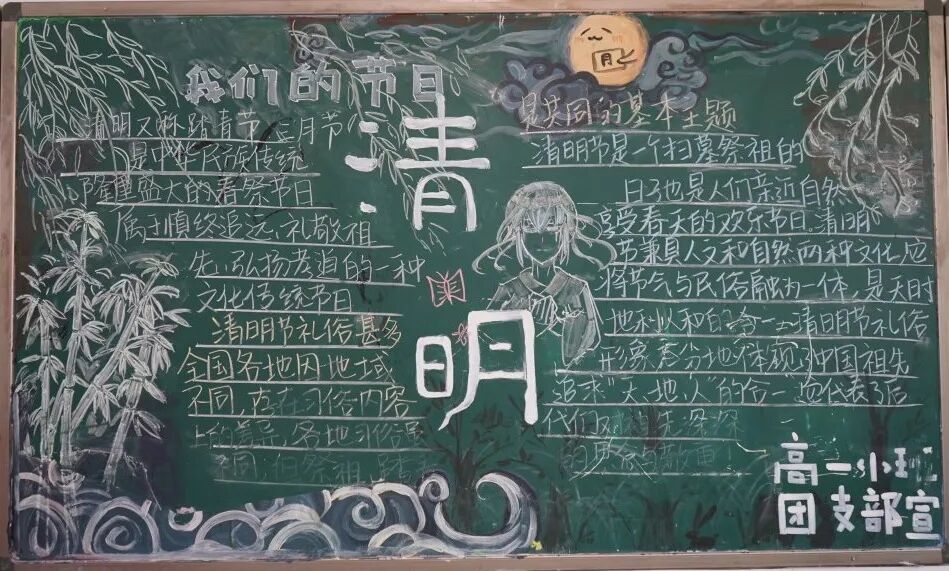 我们的节日
清明
月
清明又称踏青节、三月节
是中华民族传统
隆重盛大的春祭节日
属于慎终追远、礼敬祖
先、弘扬孝道的一种
文化传统节日
清明节礼俗甚多
全国各地因地域
不同,存在习俗内容
上的差异,各地习俗虽
不同,但祭祖、
是共同的基本主题
清明节是一个扫墓祭祖的
日子也是人们亲近自然
享受春天的欢乐节日。清明
节兼具人文和自然两种文化,应
将节气与民俗融为一体,是天时
地利人和的合一。清明节礼俗
形象充分地体现了中国祖先
追求“天、地、人”的合一
代们 先深深
的
高一小班
团支部宣